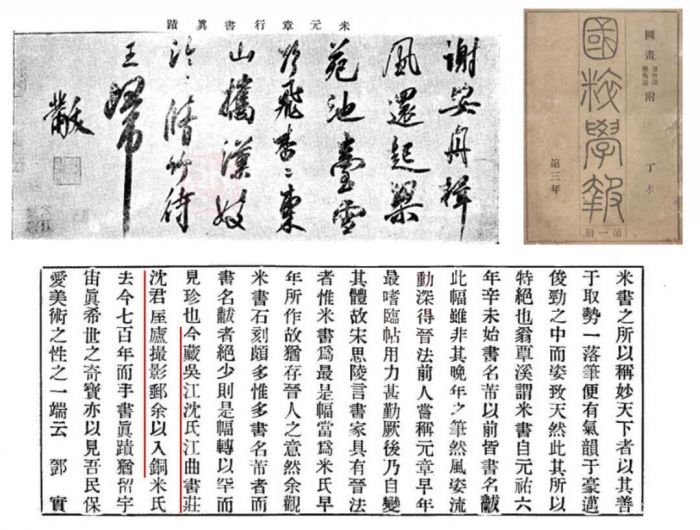 米元章行書眞蹟
謝安舟楫
風還起梁
苑池臺雪
欲飛杳杳東
山攜漢妓
泠泠脩竹待
王歸
黻
國畫
附
丁未
國粹學報
第一册
第三年
米書之所以稱妙天下者以其善
于取勢一落筆便有氣韻于豪邁
俊勁之中而姿致天然此其所以
特絕也翁覃溪謂米書自元祐六
年辛未始書名芾以前皆書名黻
此幅雖非其晚年之筆然風姿流
動深得晉法前人嘗稱元章早年
最嗜臨帖用力甚勤厥後乃自變
其體故宋思陵言書家具有晉法
者惟米書爲最是幅當爲米氏早
年所作故猶存晉人之意然余觀
米書石刻頗多惟多書名芾者而
書名黻者絕少則是幅轉以罕而
見珍也今藏吳江沈氏江曲書莊
沈君屋廬撮影郵余以入銅米氏
去今七百年而手書眞蹟猶留宇
宙眞希世之奇寶亦以見吾民保
愛美術之性之一端云 鄧實